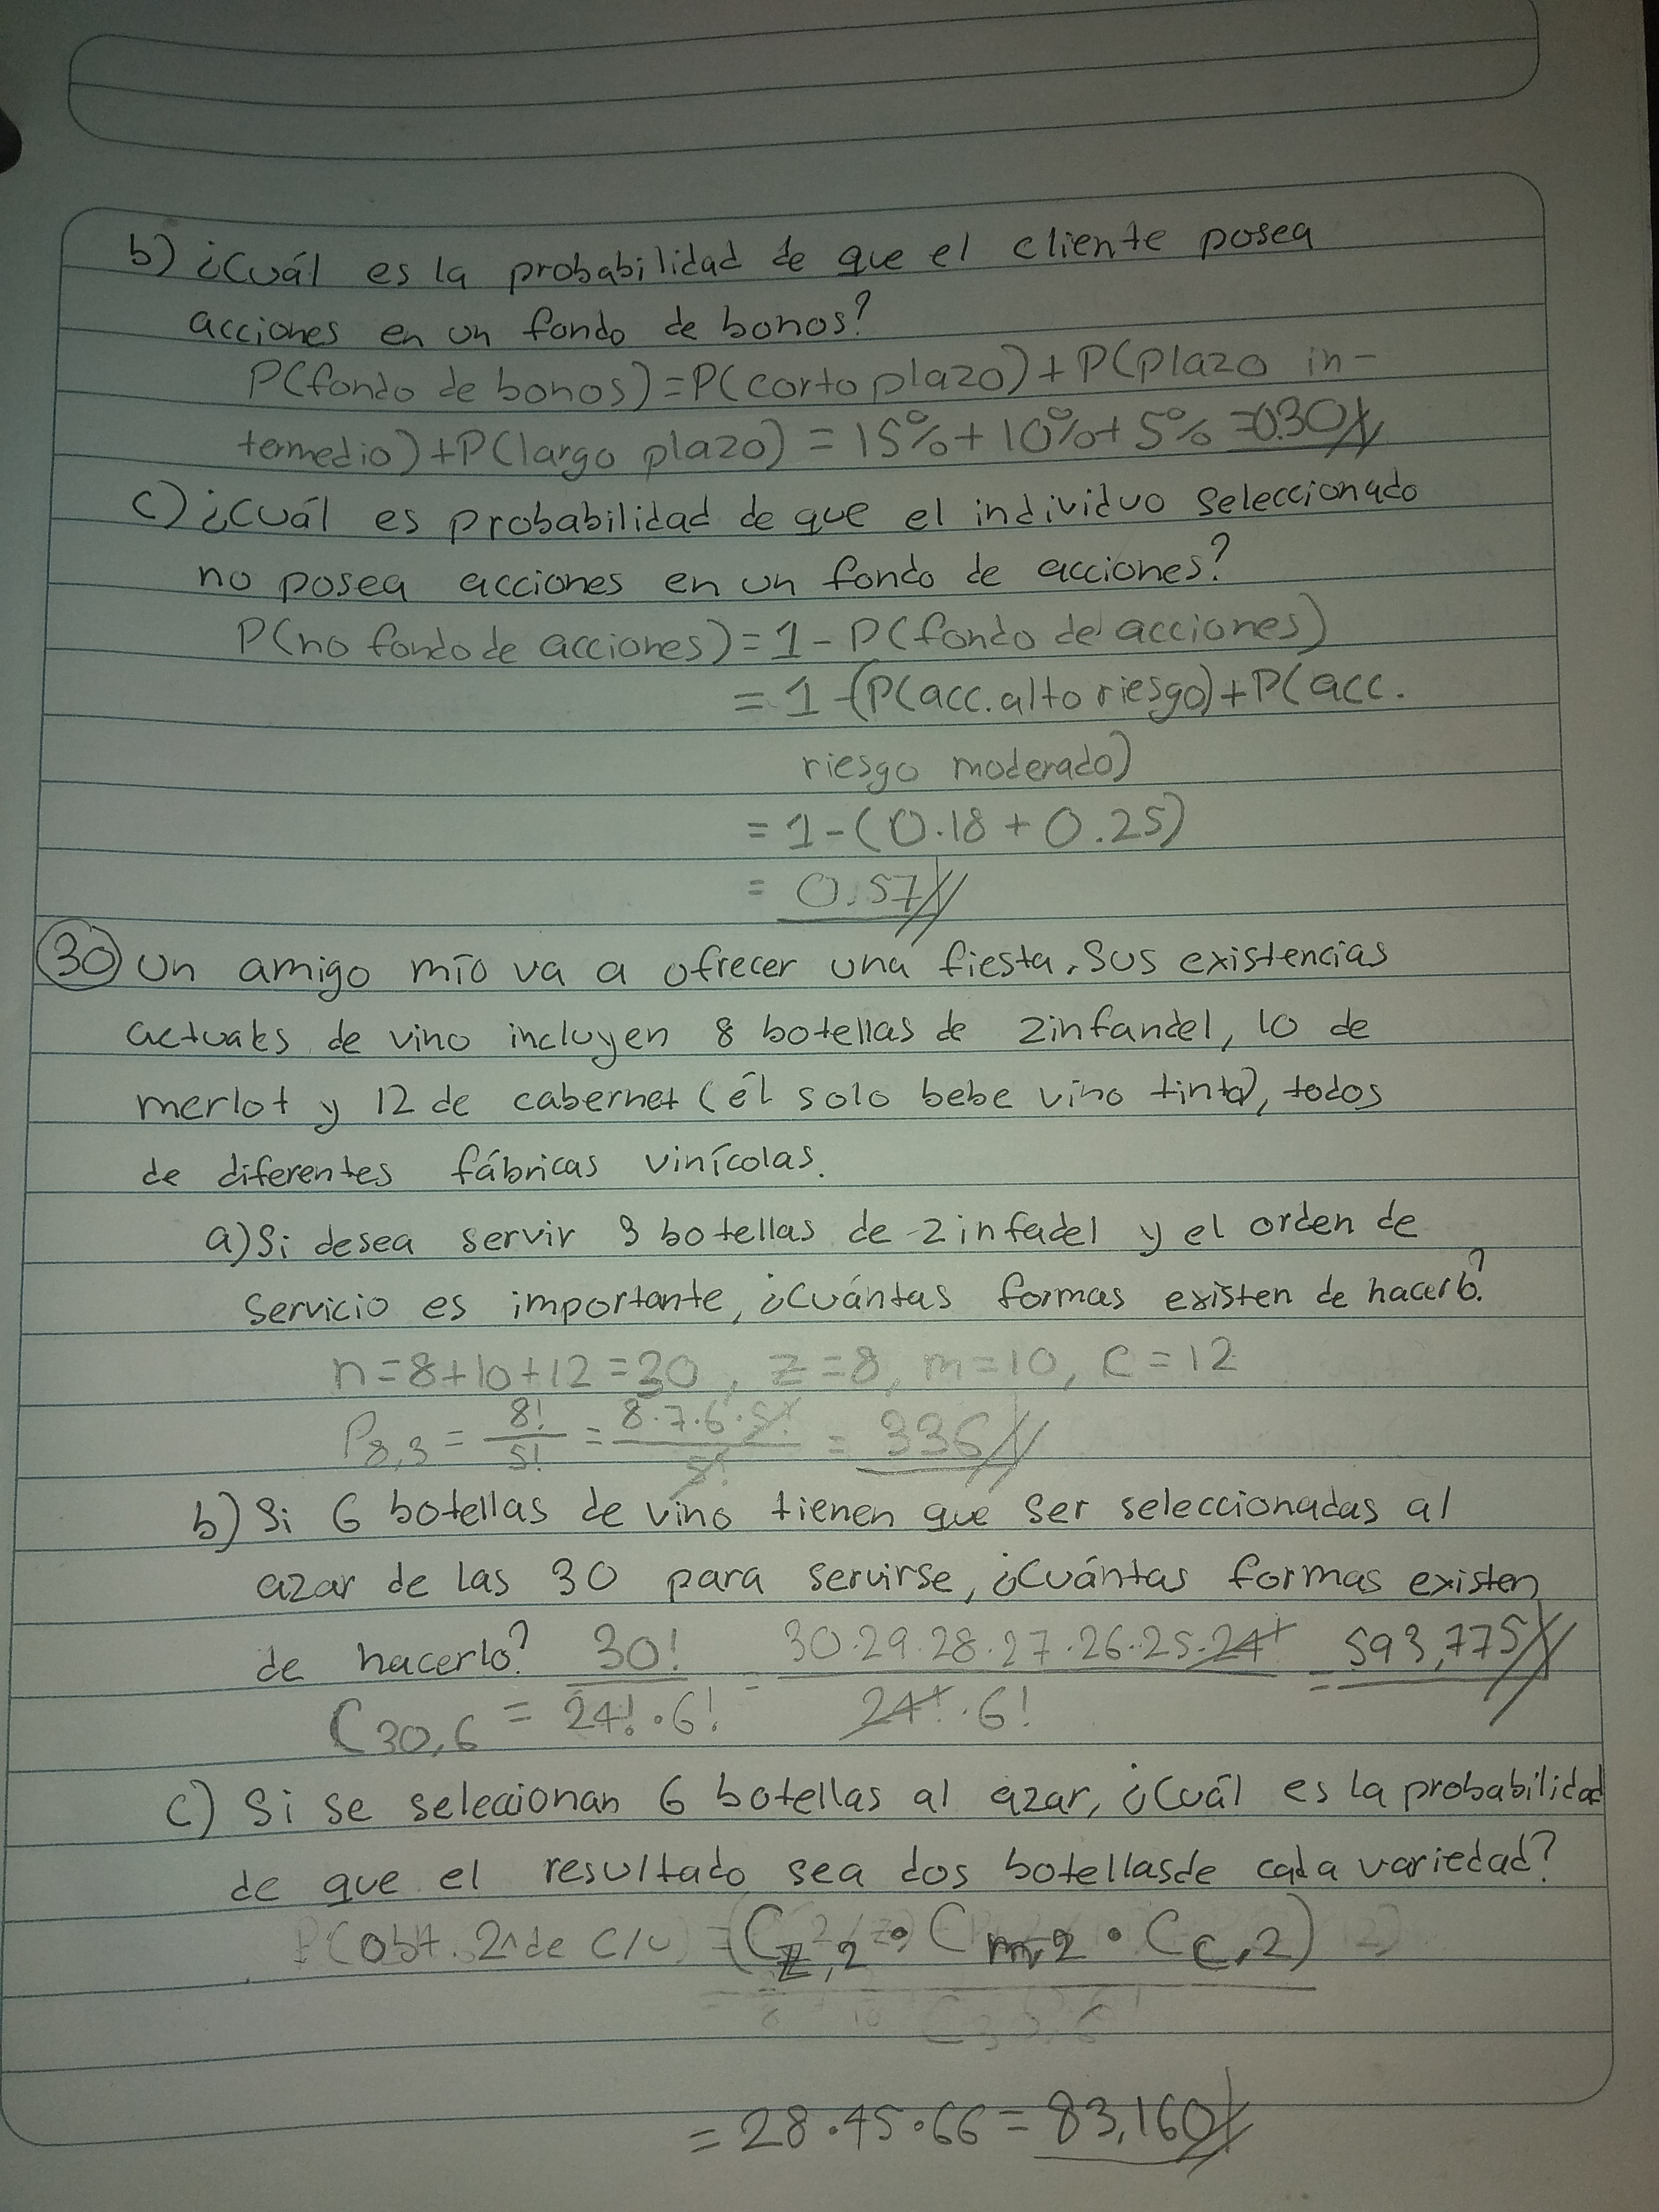 b) ¿Cuál es la probabilidad de que el cliente posea
acciones en un fondo de bonos?
P(fondo de bonos) = P(corto plazo) + P(plazo in-
termedio) + P(largo plazo) = 15% + 10% + 5% = 0.30
c) ¿Cuál es probabilidad de que el individuo seleccionado
no posea acciones en un fondo de acciones?
P(no fondo de acciones) = 1 - P(fondo de acciones)
= 1 - (P(acc. alto riesgo) + P(acc.
riesgo moderado)
= 1 - (0.18 + 0.25)
= 0.57
30 Un amigo mío va a ofrecer una fiesta. Sus existencias
actuales de vino incluyen 8 botellas de zinfandel, 10 de
merlot y 12 de cabernet (él solo bebe vino tinto), todos
de diferentes fábricas vinícolas.
a) Si desea servir 3 botellas de zinfadel y el orden de
servicio es importante, ¿Cuántas formas existen de hacerlo?
n = 8 + 10 + 12 = 30, z = 8, m = 10, c = 12
P8,3 = 8!/5! = 8·7·6·5!/5! = 336
b) Si 6 botellas de vino tienen que ser seleccionadas al
azar de las 30 para servirse, ¿Cuántas formas existen
de hacerlo?
C30,6 = 30!/24!·6! = 30·29·28·27·26·25·24!/24!·6! = 593,775
c) Si se seleccionan 6 botellas al azar, ¿Cuál es la probabilidad
de que el resultado sea dos botellas de cada variedad?
P(obt. 2 de c/u) = (Cz,2 · Cm,2 · Cc,2)
C30,6
= 28·45·66 = 83,160